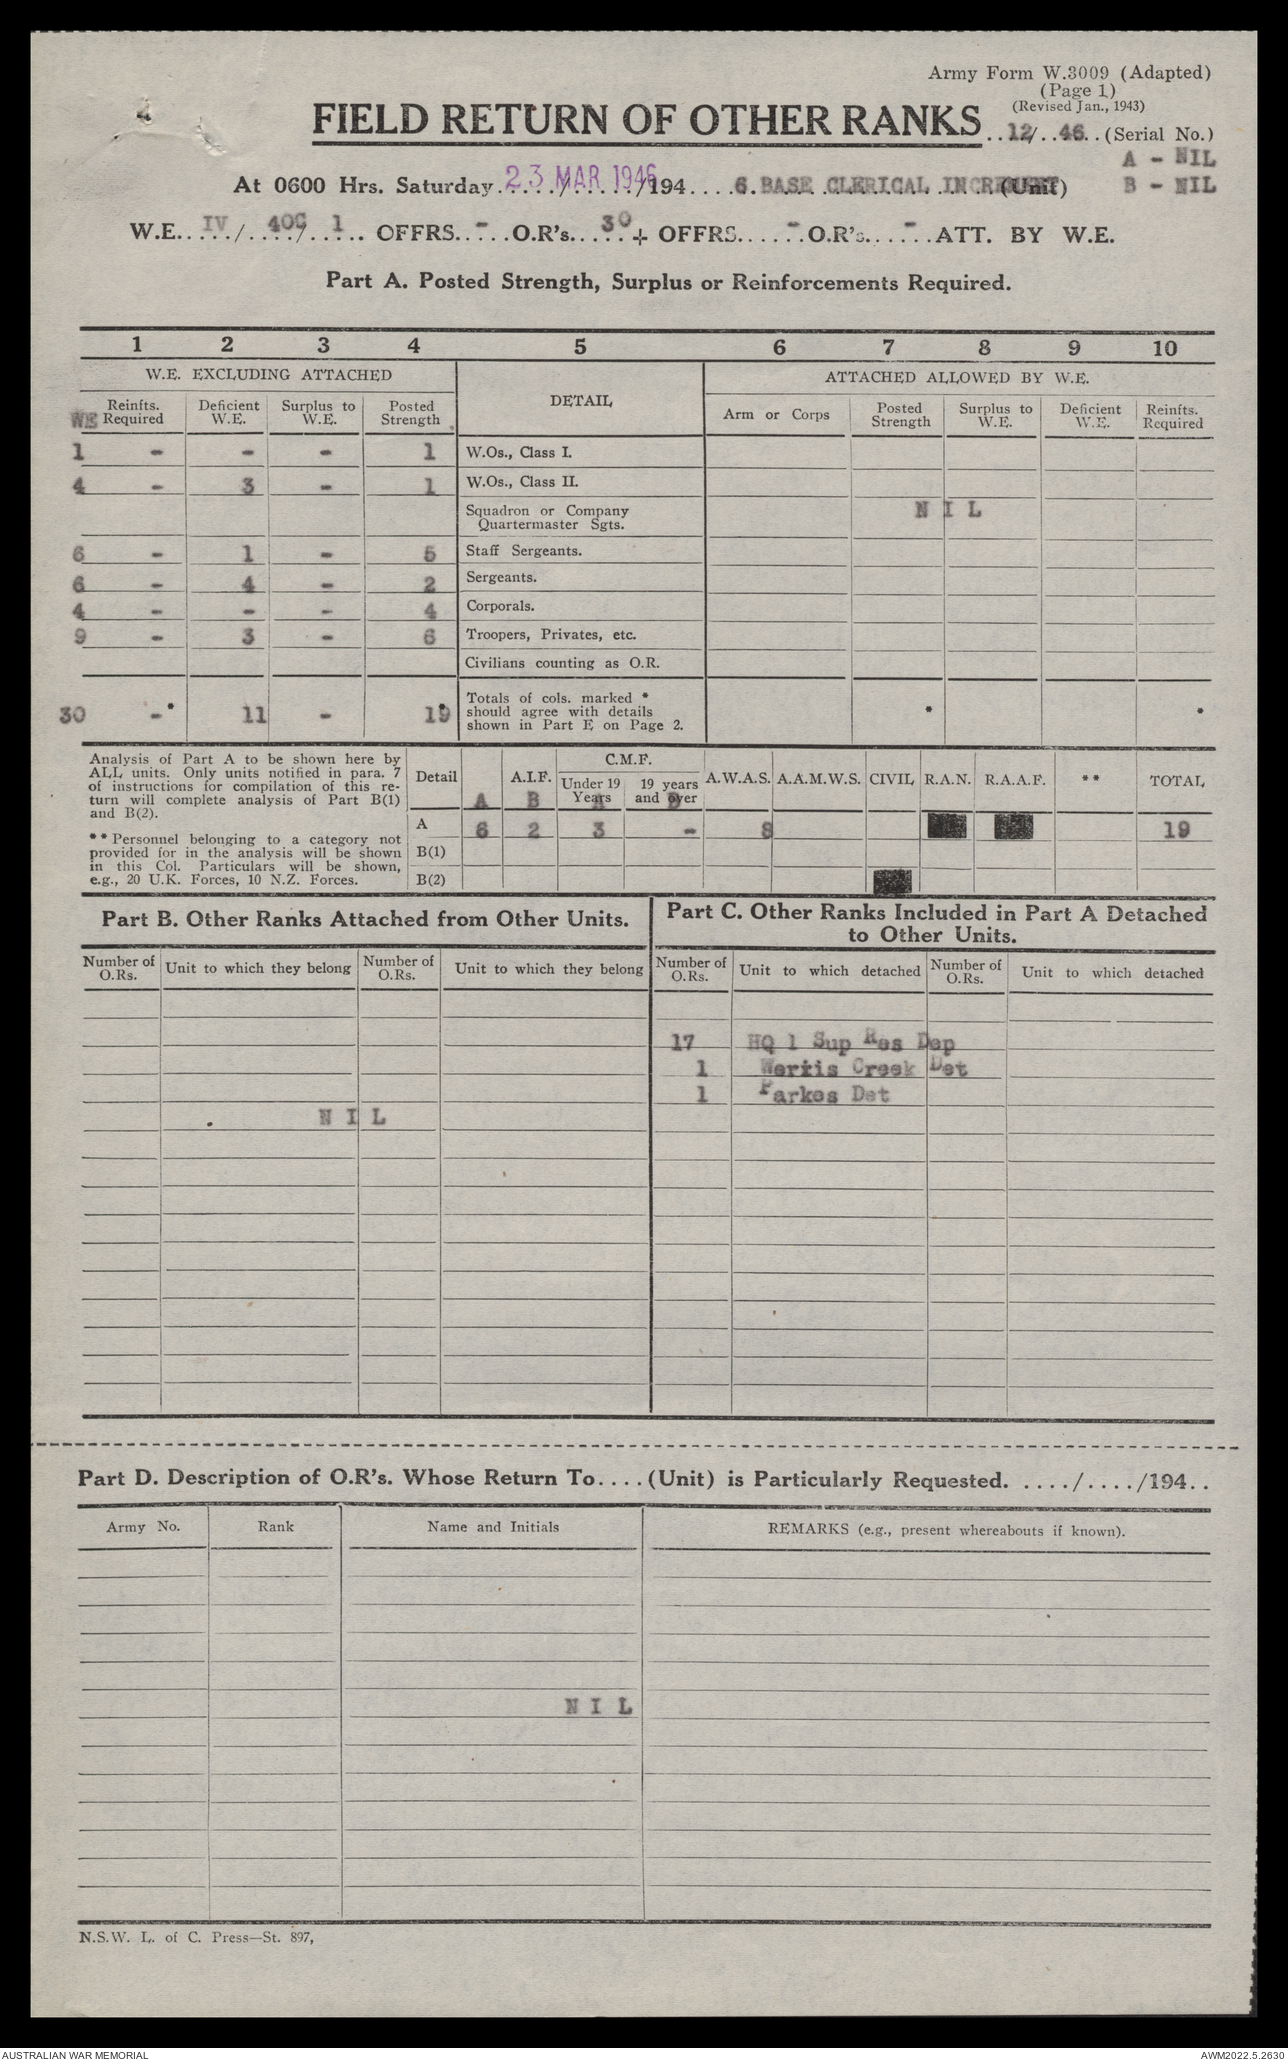 4
Army Form W.3009 (Adapted)
(Page 1)
(Revised Jan., 1943)
FIELD RETURN OF OTHER RANKS..12/..46..(Serial No.)
A - NIL
At 0600 Hrs. Saturday 23 MAR 1946/194....6.BASE CLERICAL INCREMENT (Unit)
B - NIL
W.E. IV/ 40C/ 1.. OFFRS..-..O.R's...30 + OFFRS......-O.R's......-..ATT. BY W.E.
Part A. Posted Strength, Surplus or Reinforcements Required.
1 2 3 4 5 6 7 8 9 10
W.E. EXCLUDING ATTACHED DETAIL ATTACHED ALLOWED BY W.E.
WE Reinfts. Required Deficient W.E. Surplus to W.E. Posted Strength Arm or Corps Posted Strength Surplus to W.E. Deficient W.E. Reinfts. Required
1 - - - 1 W.Os., Class I.
4 - 3 - 1 W.Os., Class II.
Squadron or Company
Quartermaster Sgts.
N I L
6 - 1 - 5 Staff Sergeants.
6 - 4 - 2 Sergeants.
4 - - - 4 Corporals.
9 - 3 - 6 Troopers, Privates, etc.
Civilians counting as O.R.
30 -* 11 - 19* Totals of cols. marked * should agree with details shown in Part E on Page 2. * *
Analysis of Part A to be shown here by
ALL units. Only units notified in para. 7
of instructions for compilation of this re-
turn will complete analysis of Part B(1)
and B(2).
** Personnel belonging to a category not
provided for in the analysis will be shown
in this Col. Particulars will be shown,
e.g., 20 U.K. Forces, 10 N.Z. Forces.
C.M.F.
Detail A.I.F. Under 19 Years 19 years and over A.W.A.S. A.A.M.W.S. CIVIL R.A.N. R.A.A.F. ** TOTAL
A B A B
A 6 2 3 - 8 19
B(1)
B(2)
Part B. Other Ranks Attached from Other Units.
Part C. Other Ranks Included in Part A Detached
to Other Units.
Number of O.Rs. Unit to which they belong Number of O.Rs. Unit to which they belong Number of O.Rs. Unit to which detached Number of O.Rs. Unit to which detached
17 HQ 1 Sup Res Dep
1 Werris Creek Det
1 Parkes Det
N I L
Part D. Description of O.R's. Whose Return To....(Unit) is Particularly Requested. ..../..../194..
Army No. Rank Name and Initials REMARKS (e.g., present whereabouts if known).
N I L
N.S.W. L. of C. Press—St. 897,
AUSTRALIAN WAR MEMORIAL AWM2022.5.2630